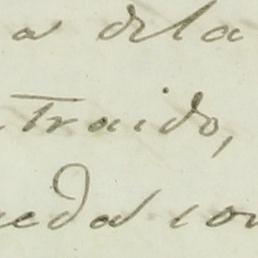 a dela
traido,
eda con